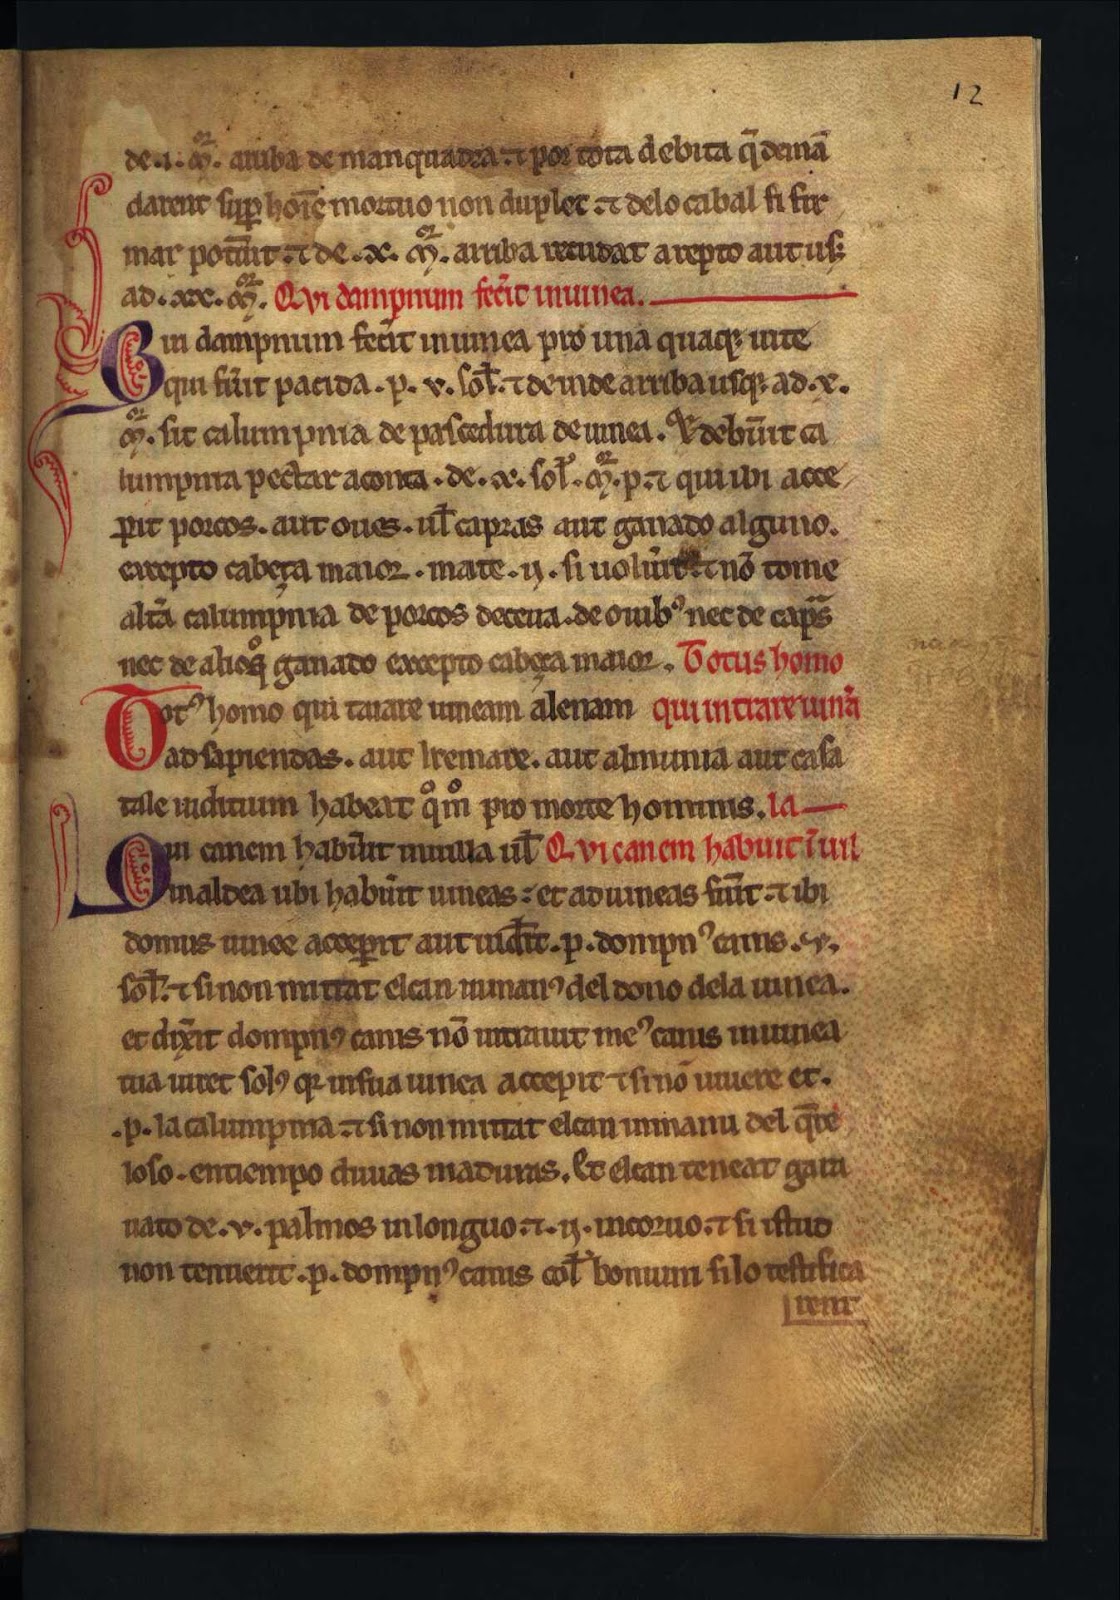 12
de .i. mr̃. arriba de manquadra ⁊ por tota debita q̃ demã
darent sup hoĩe mortuo non duplet ⁊ delo cabal si fir
mar potũit ⁊ de .x. mr̃. arriba recudat a repto aut usq;
ad .xx. mr̃. Qvi dampnum fec̃it in uinea.
Qui dampnum fec̃it in uinea pro una quaq; uite
qui fũit pacida .p. v. sol̃. ⁊ deinde arriba usq; ad .x.
mr̃. sit calumpnia de pascedura de uinea. Et deb̃uit ca
lumpnia pectar aconta .de .x. sol̃. mr̃. p. ⁊ qui ibi acce
perit porcos. aut oues. ul̃ capras aut ganado alguno.
excepto cabeça maior. mate .ij. si uolũit ⁊ nõ tome
altã calumpnia de porcos deceua. de ouibꝰ nec de cap̃s
nec de alioq̊ ganado excepto cabeça maior. Totus homo
Totꝰ homo qui taiare uineam alienam qui intrare uinã
ad sapiendas. aut cremare. aut almunia aut casa
tale iuditium habeat q̊m̊ pro morte hominis. la
Qui canem hab̃uit in uilla ul̃ Qvi canem habuit ĩ uil
in aldea ubi hab̃uit uineas: et ad uineas fũit ⁊ ibi
domus uinee acceperit aut uid̃it. p. dompnꝰ canis .v.
sol̃. ⁊ si non mittat el can in manꝰ del dono dela uinea.
et dix̃it dompnꝰ canis nõ intrauit meꝰ canis in uinea
tua iuret solꝰ qr in sua uinea accepit ⁊ si nõ iuuere et.
.p. la calumpnia ⁊ si non mittat el can in manu del q̃re
loso. en tiempo duuas maduras. Et el can teneat gara
uato de .v. palmos in longuo ⁊ .ij. in coruo. ⁊ si istud
non tenuerit .p. dompnꝰ canis col̃ bonum si lo testifica
rent